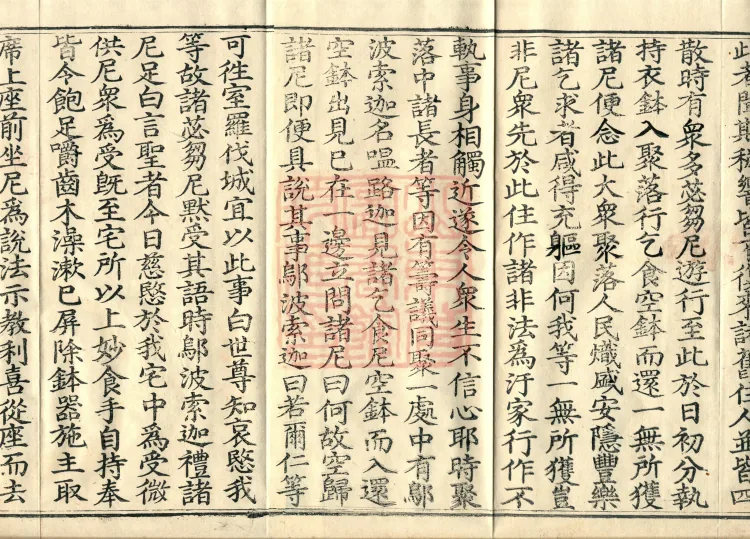 散時有衆多苾芻尼遊行至此於日初分執
持衣鉢入聚落行乞食空鉢而還一無所獲
諸尼便念此大衆聚落人民熾盛安隱豐樂
諸乞求者咸得充軀因何我等一無所獲豈
非尼衆先於此住作諸非法爲汙家行作不
執事身相觸近遂令人衆生不信心耶時聚
落中諸長者等因有籌議同聚一處中有鄔
波索迦名嗢路迦見諸乞食尼空鉢而入還
空鉢出見已在一邊立問諸尼曰何故空歸
諸尼即便具說其事鄔波索迦曰若爾仁等
可往室羅伐城宜以此事白世尊知哀愍我
等故諸苾芻尼默受其語時鄔波索迦禮諸
尼足白言聖者今日慈愍於我宅中爲受微
供尼衆爲受旣至宅所以上妙食手自持奉
皆令飽足嚼齒木澡漱已屏除鉢器施主取
席上座前坐尼爲說法示教利喜從座而去